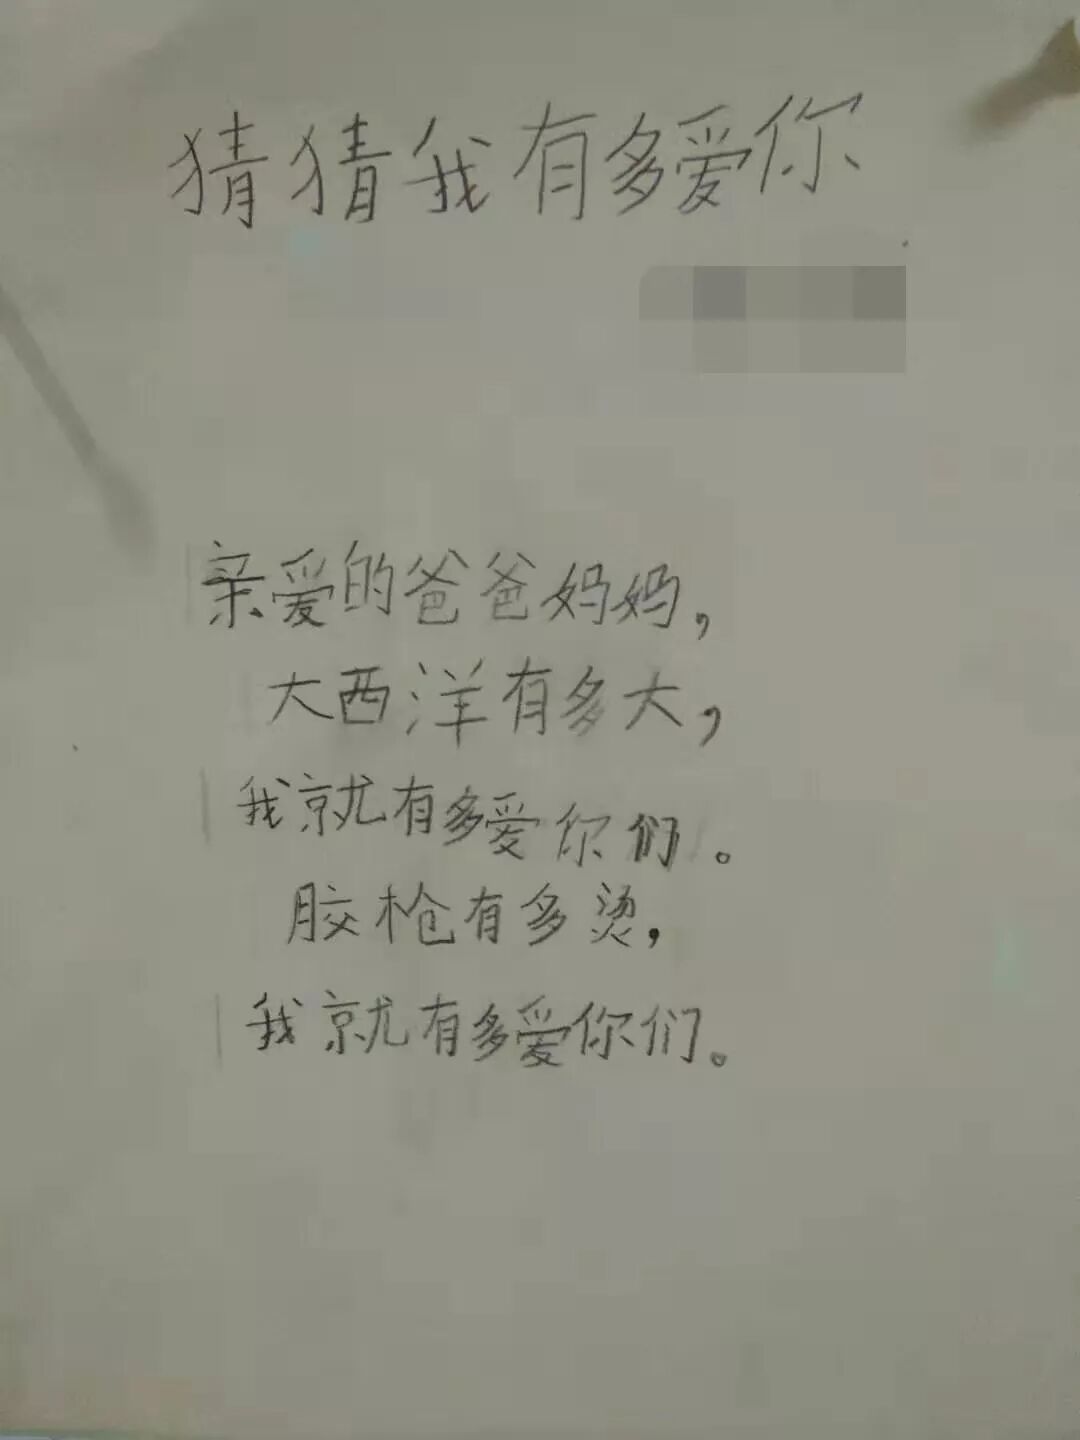 猜猜我有多爱你
亲爱的爸爸妈妈，
大西洋有多大，
我就有多爱你们。
胶枪有多烫，
我就有多爱你们。